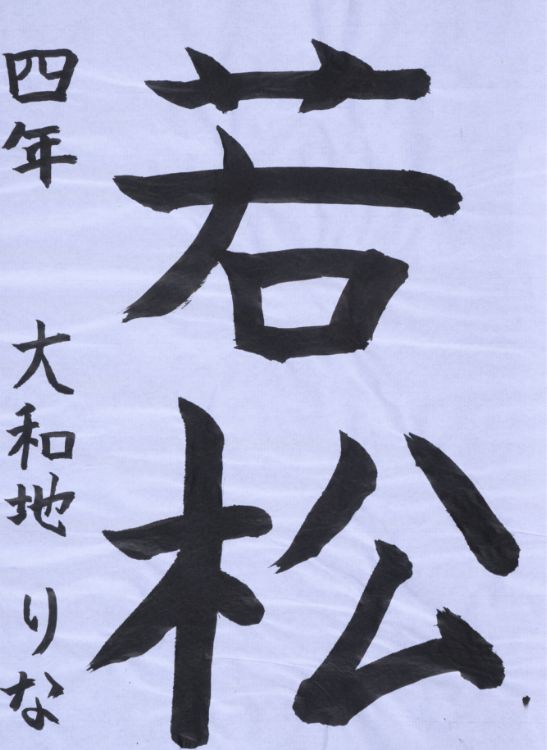 若松
四年 大和地 りな